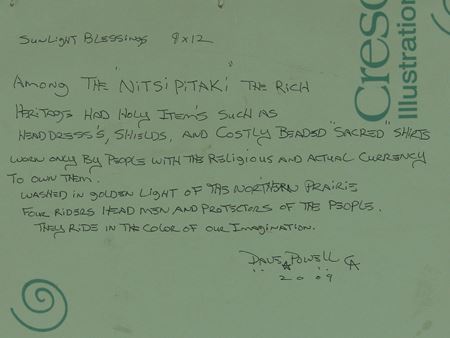 Sunlight Blessings 9x12
Among The "Nitsipitaki" The Rich
Heritage Had Holy Item's Such as
Headdress's, Shields, and Costly Beaded "Sacred" Shirts
worn only By People with the Religious and Actual Currency
To own Them.
Washed in golden Light of The Northern Prairie
Four Riders Head Men and Protectors of The People.
They Ride in The Color of our Imagination.
Dave Powell CA
2009
Cresc
Illustration